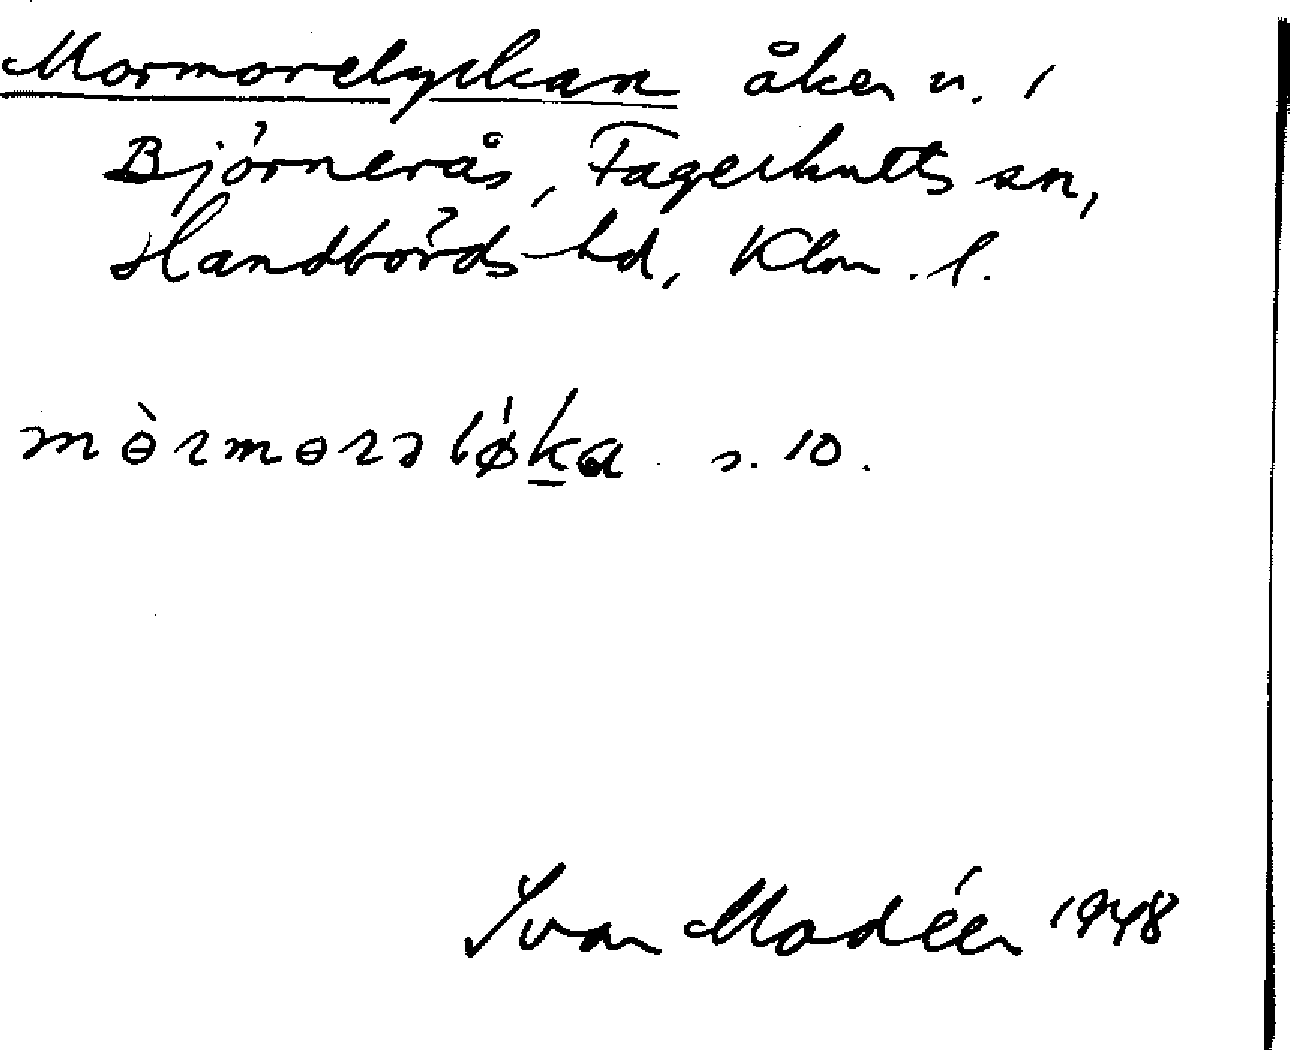 Mormorelyckan åker u. i
Björnerås, Fagerhults sn,
Handbörds hd, Klm. l.
mɵ̀rmɵrə lǿḵa s. 10.
Ivar Modéer 1948